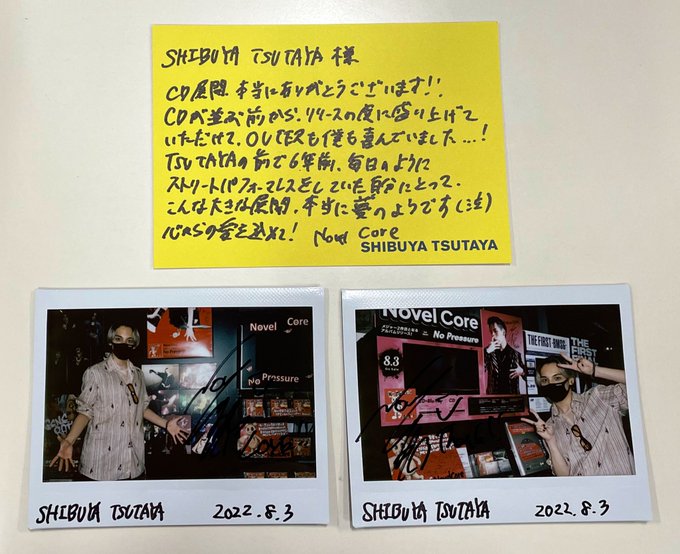 SHIBUYA TSUTAYA 様
CD展開、本当にありがとうございます!!
CDが並ぶ前から、リリースの度に盛り上げて
いただけて、OUTERも僕も喜んでいました...!
TSUTAYAの前で6年前、毎日のように
ストリートパフォーマンスをしていた自分にとって、
こんな大きな展開、本当に夢のようです(泣)
心からの愛を込めて! Novel Core
SHIBUYA TSUTAYA
Novel Core
No Pressure
SHIBUYA TSUTAYA 2022.8.3
Novel Core
メジャー2作目となる
アルバムリリース!
No Pressure
8.3
THE FIRST -BMSG-
THE FIRST
SHIBUYA TSUTAYA 2022.8.3